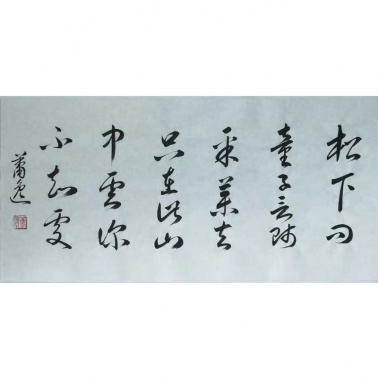 松下问
童子言师
采药去
只在此山
中云深
不知处
萧逸